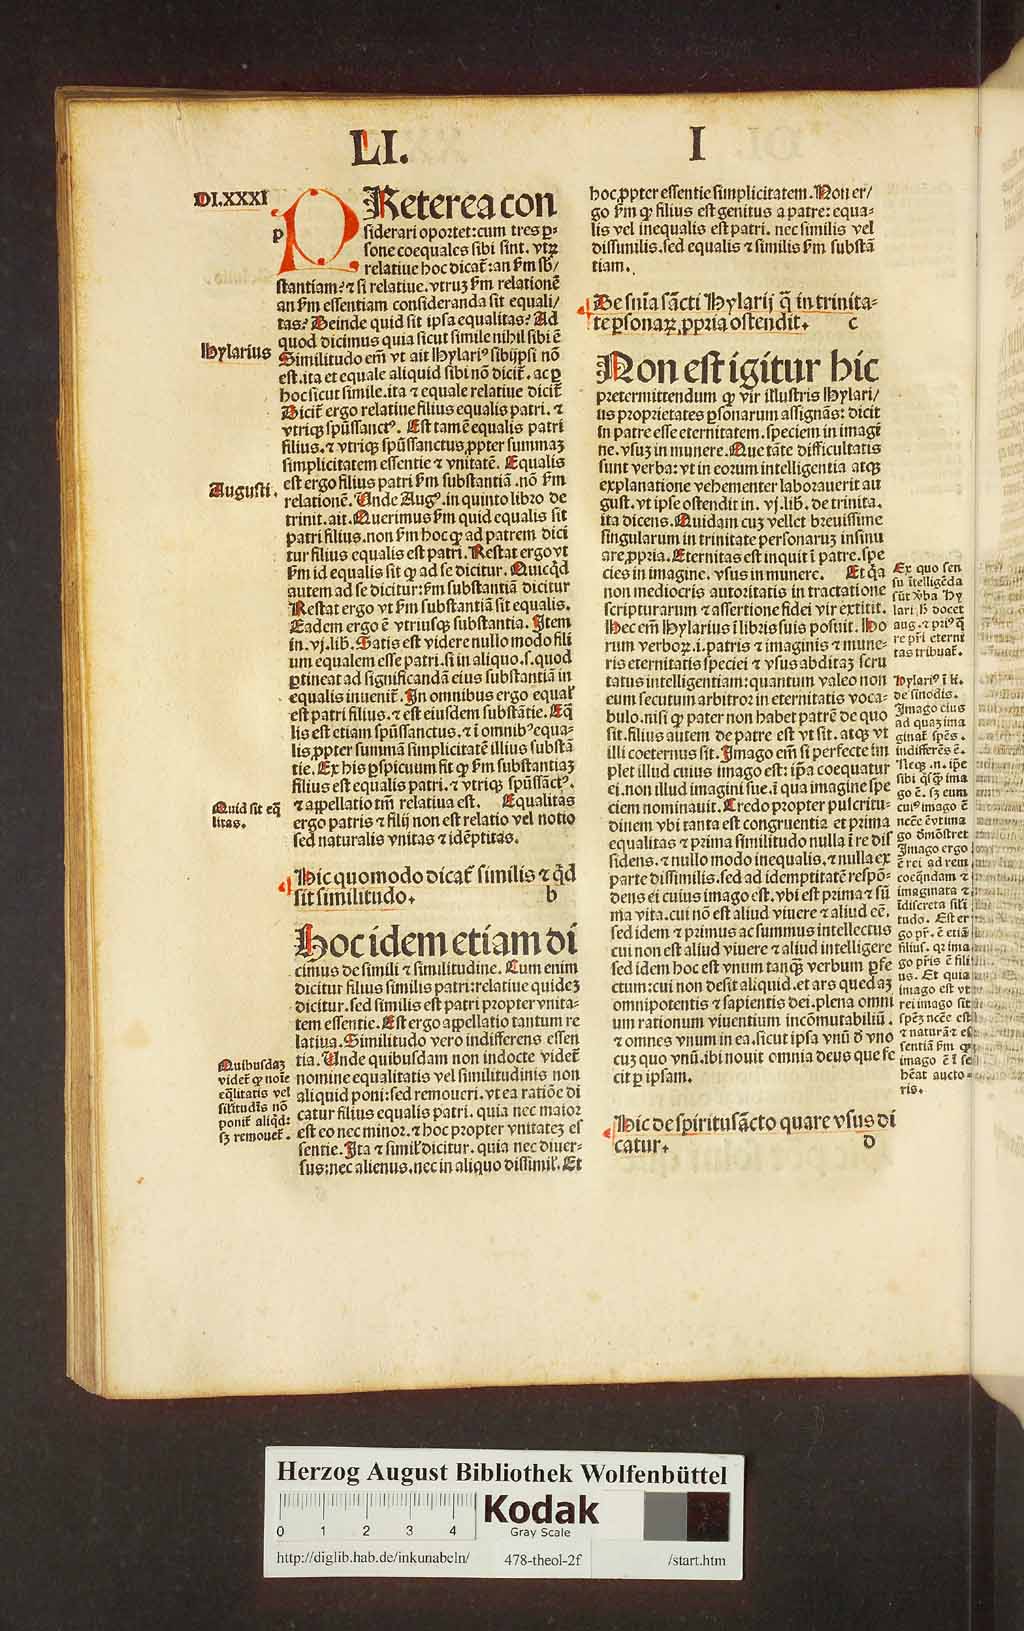 LI.
I
DI.XXXI
PReterea con
p
siderari oportet: cum tres ꝑ-
sone coequales sibi sint. vtꝝ
relatiue hoc dicat̄: an ẜm sb̄/
stantiam? ⁊ si relatiue. vtruꝫ ẜm relationē
an ẜm essentiam consideranda sit equali/
tas? Deinde quid sit ipsa equalitas? Ad
quod dicimus quia sicut simile nihil sibi ē
Hylarius
Similitudo em̄ vt ait Hylariꝰ sibijpsi nō
est. ita et equale aliquid sibi nō dicit̄. ac ꝑ
hoc sicut simile. ita ⁊ equale relatiue dicit̄
Dicit̄ ergo relatiue filius equalis patri. ⁊
vtriqꝫ spūssanctꝰ. Est tamē equalis patri
filius. ⁊ vtriqꝫ spūssanctus ꝓpter summaꝫ
simplicitatem essentie ⁊ vnitatē. Equalis
Augusti.
est ergo filius patri ẜm substantiā. nō ẜm
relationē. Unde Augꝰ. in quinto libro de
trinit. ait. Querimus ẜm quid equalis sit
patri filius. non ẜm hoc ꝙ ad patrem dici
tur filius equalis est patri. Restat ergo vt
ẜm id equalis sit ꝙ ad se dicitur. Quicq̇d
autem ad se dicitur: ẜm substantiā dicitur
Restat ergo vt ẜm substantiā sit equalis.
Eadem ergo ē vtriusqꝫ substantia. Item
in. vj. lib. Satis est videre nullo modo fili
um equalem esse patri. si in aliquo. s. quod
ꝑtineat ad significandā eius substantiā in
equalis inuenit̄. In omnibus ergo equal̕
est patri filius. ⁊ est eiusdem substātie. Eq̄
lis est etiam spūssanctus. ⁊ ī omnibꝰ equa-
lis ꝓpter summā simplicitatē illius substā
tie. Ex his ꝑspicuum fit ꝙ ẜm substantiaꝫ
filius est equalis patri. ⁊ vtriqꝫ spūssāctꝰ.
Quid sit eq̄
litas.
⁊ appellatio tm̄ relatiua est. Equalitas
ergo patris ⁊ filij non est relatio vel notio
sed naturalis vnitas ⁊ idēptitas.
Hic quomodo dicat̄ similis ⁊ q̇d
sit similitudo. b
Hoc idem etiam di
cimus de simili ⁊ similitudine. Cum enim
dicitur filius similis patri: relatiue quideꝫ
dicitur. sed similis est patri propter vnita-
tem essentie. Est ergo appellatio tantum re
latiua. Similitudo vero indifferens essen
Quibusdaꝫ
videt̄ ꝙ noīe
eq̄litatis vel
sil̕itudīs nō
ponit̄ aliq̇d:
sꝫ remouet̄.
tia. Unde quibusdam non indocte videt̄
nomine equalitatis vel similitudinis non
aliquid poni: sed remoueri. vt ea ratiōe di
catur filius equalis patri. quia nec maior
est eo nec minor. ⁊ hoc propter vnitateꝫ es
sentie. Ita ⁊ simil̕ dicitur. quia nec diuer-
sus: nec alienus. nec in aliquo dissimil̕. Et
hoc ꝓpter essentie simplicitatem. Non er/
go ẜm ꝙ filius est genitus a patre: equa-
lis vel inequalis est patri. nec similis vel
dissimilis. sed equalis ⁊ similis ẜm substā
tiam.
De snīa sācti Hylarij q̄ in trinita-
te ꝑsonaꝝ ꝓpria ostendit. c
Non est igitur hic
pretermittendum ꝙ vir illustris Hylari/
us proprietates ꝑsonarum assignās: dicit
in patre esse eternitatem. speciem in imagi
ne. vsuꝫ in munere. Que tāte difficultatis
sunt verba: vt in eorum intelligentia atqꝫ
explanatione vehementer laborauerit au
gust. vt ipse ostendit in. vj. lib. de trinita.
ita dicens. Quidam cuꝫ vellet breuissime
singularum in trinitate personaruꝫ insinu
are ꝓpria. Eternitas est inquit ī patre. spe
cies in imagine. vsus in munere. Et q̇a
non mediocris autoritatis in tractatione
scripturarum ⁊ assertione fidei vir extitit.
Hec em̄ Hylarius ī libris suis posuit. Ho
rum verboꝝ. i. patris ⁊ imaginis ⁊ mune-
ris eternitatis speciei ⁊ vsus abditaꝫ scru
tatus intelligentiam: quantum valeo non
eum secutum arbitror in eternitatis voca-
bulo. nisi ꝙ pater non habet patrē de quo
sit. filius autem de patre est vt sit. atqꝫ vt
illi coeternus sit. Imago em̄ si perfecte im
plet illud cuius imago est: ip̄a coequatur
ei. non illud imagini sue. ī qua imagine spe
ciem nominauit. Credo propter pulcritu-
dinem vbi tanta est congruentia et prima
equalitas ⁊ prima similitudo nulla ī re dis
sidens. ⁊ nullo modo inequalis. ⁊ nulla ex
parte dissimilis. sed ad idemptitatē respō-
dens ei cuius imago est. vbi est prima ⁊ sū
ma vita. cui nō est aliud viuere ⁊ aliud eē.
sed idem ⁊ primus ac summus intellectus
cui non est aliud viuere ⁊ aliud intelligere
sed idem hoc est vnum tanqꝫ verbum ꝑfe
ctum: cui non desit aliquid. et ars quedaꝫ
omnipotentis ⁊ sapientis dei. plena omni
um rationum viuentium incōmutabiliū.
⁊ omnes vnum in ea. sicut ipsa vnū ď vno
cuꝫ quo vnū. ibi nouit omnia deus que fe
cit ꝑ ipsam.
Hic de spiritusācto quare vsus di
catur. d
Ex quo sen
su ītelligēda
sūt v̓ba Hy
larī h̄ docet
aug. ⁊ priꝰ q̄
re prī eterni
tas tribuat̄.
Hylariꝰ ī li.
de sinodis.
Imago eius
ad quaꝫ ima
ginat̄ spēs.
indifferēs ē.
Neqꝫ. n. ip̄e
sibi q̄sqꝫ ima
go ē. sꝫ eum
cuiꝰ imago ē
ncēē ē vt ima
go ďmōstret
Imago ergo
ē rei ad rem
coeq̄ndam ⁊
imaginata ⁊
īdiscreta sil̕i
tudo. Est er
go pr̄. ē etiā
filius. qꝛ ima
go pr̄is ē fili
us. Et quia
imago est vt
rei imago sit
spēꝫ ncēē est
⁊ naturā ⁊ es
sentiā ẜm ꝙ
imago ē ī se
hēat aucto-
ris.
Herzog August Bibliothek Wolfenbüttel
0 1 2 3 4
Kodak
Gray Scale
http://diglib.hab.de/inkunabeln/ 478-theol-2f /start.htm